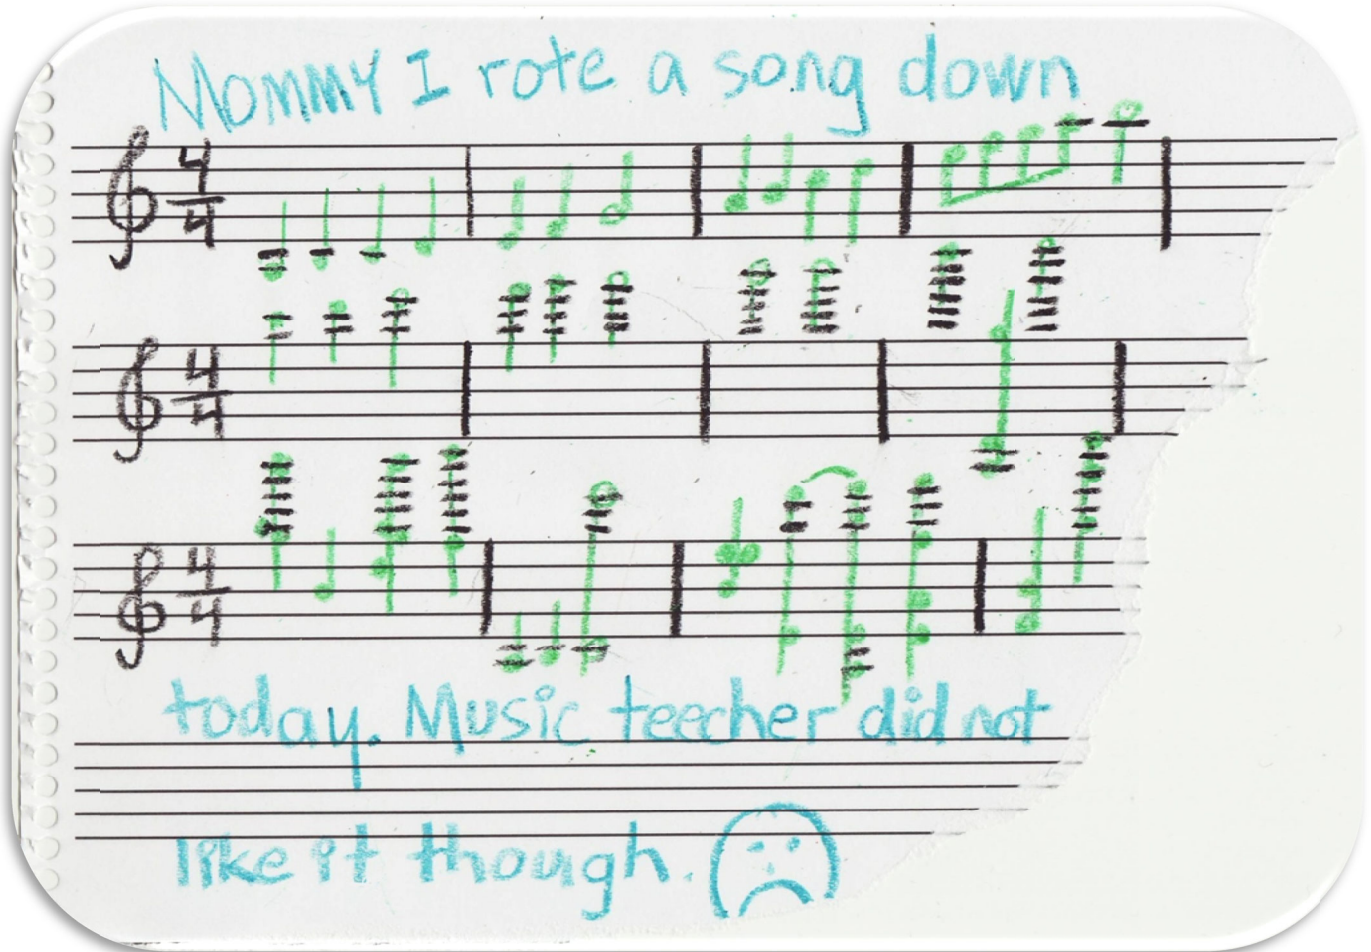 Mommy I rote a song down
4
4
4
4
4
4
today. Music teecher did not
like it though.